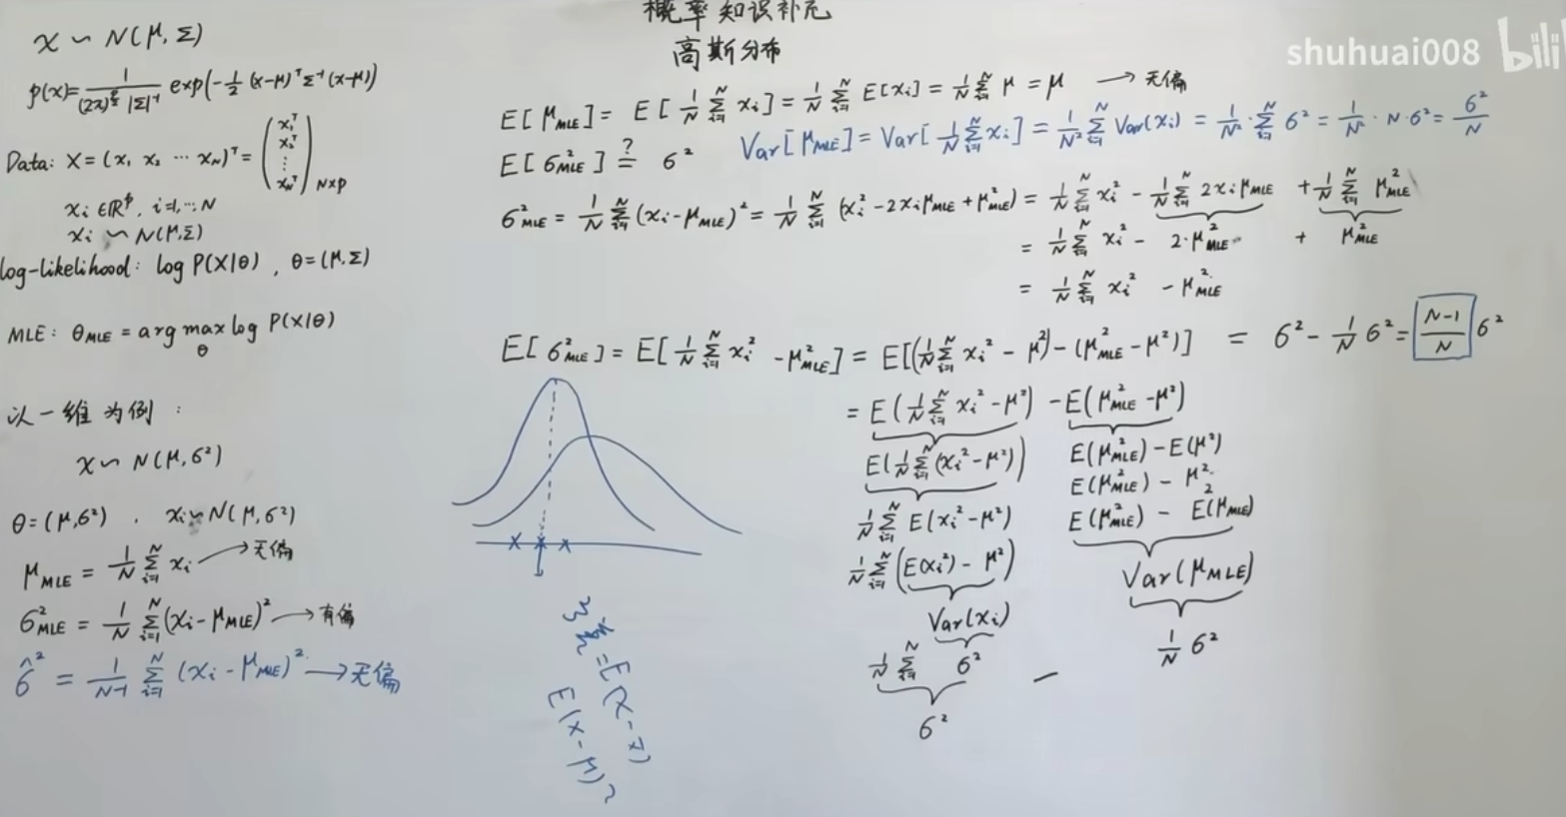 概率知识补充
高斯分布
shuhuai008 bili
x ~ N(μ, Σ)
p(x) = 1/((2π)^{p/2} |Σ|^{-1}) exp(-1/2 (x-μ)^T Σ^{-1} (x-μ))
Data: X = (x₁ x₂ ⋯ x_N)^T = (x₁^T x₂^T ⋮ x_N^T)_{N×p}
x_i ∈ ℝ^p, i=1,⋯N
x_i ~ N(μ,Σ)
log-likelihood: log P(X|θ), θ=(μ,Σ)
MLE: θ_MLE = arg max_θ log P(X|θ)
以一维为例:
x ~ N(μ,σ²)
θ=(μ,σ²). x_i ~ N(μ,σ²)
μ_MLE = 1/N Σ_{i=1}^N x_i → 无偏
σ²_MLE = 1/N Σ_{i=1}^N (x_i-μ_MLE)² → 有偏
σ̂² = 1/(N-1) Σ_{i=1}^N (x_i-μ_MLE)² → 无偏
E[μ_MLE] = E[1/N Σ_{i=1}^N x_i] = 1/N Σ_{i=1}^N E[x_i] = 1/N Σ_{i=1}^N μ = μ → 无偏
Var[μ_MLE] = Var[1/N Σ_{i=1}^N x_i] = 1/N² Σ_{i=1}^N Var(x_i) = 1/N² · Σ_{i=1}^N σ² = 1/N² · N·σ² = σ²/N
E[σ²_MLE] ?= σ²
σ²_MLE = 1/N Σ_{i=1}^N (x_i-μ_MLE)² = 1/N Σ_{i=1}^N (x_i² - 2x_iμ_MLE + μ²_MLE) = 1/N Σ_{i=1}^N x_i² - 1/N Σ_{i=1}^N 2x_iμ_MLE + 1/N Σ_{i=1}^N μ²_MLE
= 1/N Σ_{i=1}^N x_i² - 2·μ²_MLE + μ²_MLE
= 1/N Σ_{i=1}^N x_i² - μ²_MLE
E[σ²_MLE] = E[1/N Σ_{i=1}^N x_i² - μ²_MLE] = E[(1/N Σ_{i=1}^N x_i² - μ²) - (μ²_MLE - μ²)] = σ² - 1/N σ² = (N-1)/N σ²
= E(1/N Σ_{i=1}^N x_i² - μ²) - E(μ²_MLE - μ²)
E(1/N Σ_{i=1}^N (x_i² - μ²))
1/N Σ_{i=1}^N E(x_i² - μ²)
1/N Σ_{i=1}^N (E(x_i²) - μ²)
Var(x_i)
1/N Σ_{i=1}^N σ² -
σ²
E(μ²_MLE) - E(μ²)
E(μ²_MLE) - μ²
E(μ²_MLE) - E²(μ_MLE)
Var(μ_MLE)
1/N σ²
= E(x-x̄)
E(x-μ)²